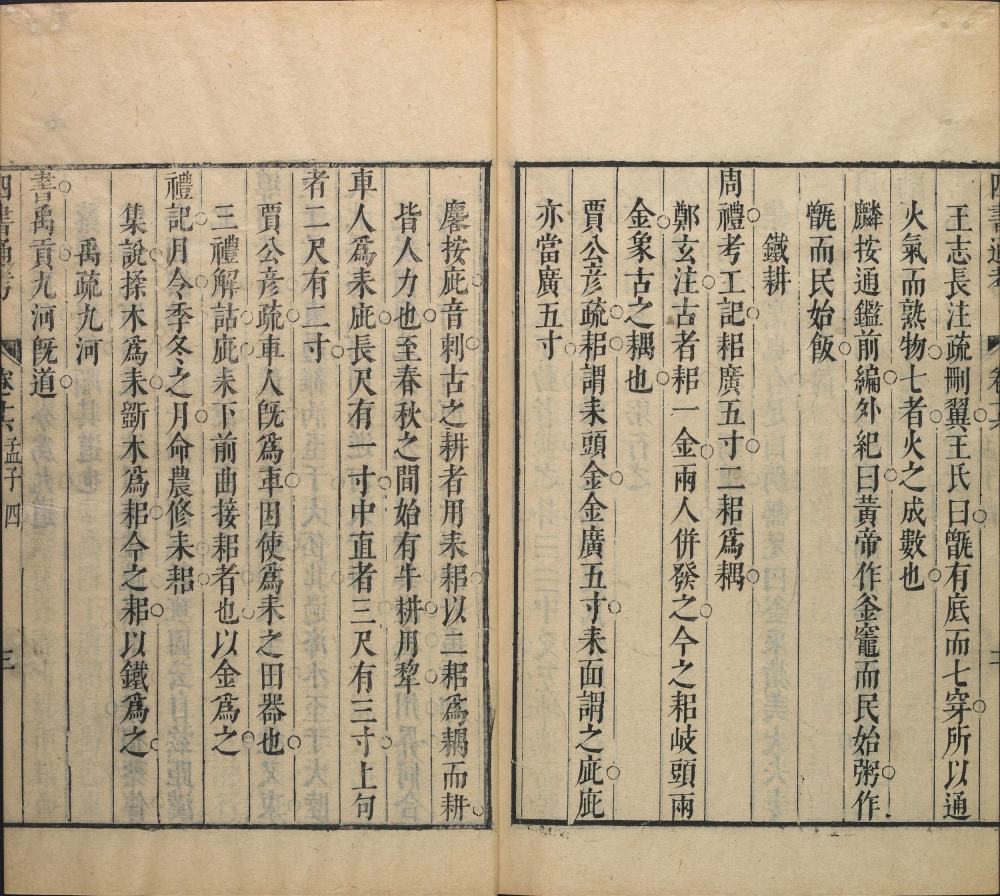 王志長注疏刪翼王氏曰甑有底而七穿所以通
火氣而熟物七者火之成數也
麟按通鑑前編外紀曰黃帝作釜竈而民始粥作
甑而民始飯
鐵耕
周禮考工記耜廣五寸二耜爲耦
鄭玄注古者耜一金兩人併發之今之耜岐頭兩
金象古之耦也
賈公彥疏耜謂耒頭金金廣五寸耒面謂之庛庛
亦當廣五寸
麐按庛音刺古之耕者用耒耜以二耜爲耦而耕
皆人力也至春秋之間始有牛耕用犂
車人爲耒庛長尺有一寸中直者三尺有三寸上句
者二尺有二寸
賈公彥疏車人旣爲車因使爲耒之田器也
三禮解詁庛耒下前曲接耜者也以金爲之
禮記月令季冬之月命農修耒耜
集說揉木爲耒斵木爲耜今之耜以鐵爲之
禹疏九河
書禹貢九河旣道
四書通考 孟子四 三